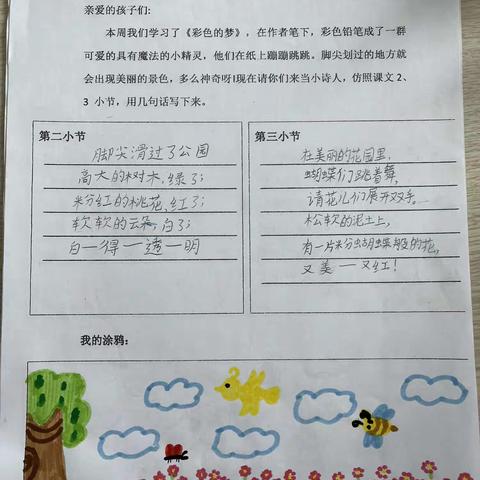 亲爱的孩子们:
本周我们学习了《彩色的梦》，在作者笔下，彩色铅笔成了一群
可爱的具有魔法的小精灵，他们在纸上蹦蹦跳跳。脚尖划过的地方就
会出现美丽的景色，多么神奇呀!现在请你们来当小诗人，仿照课文 2、
3 小节，用几句话写下来。
第二小节
脚尖滑过了公园
高大的树木,绿了;
粉红的桃花,红了;
软软的云朵,白了;
白一得一透一明
第三小节
在美丽的花园里,
蝴蝶们跳着舞,
请花儿们展开双手。
松软的泥土上,
有一片粉蝴蝶般的花,
又美——又红!
我的涂鸦: